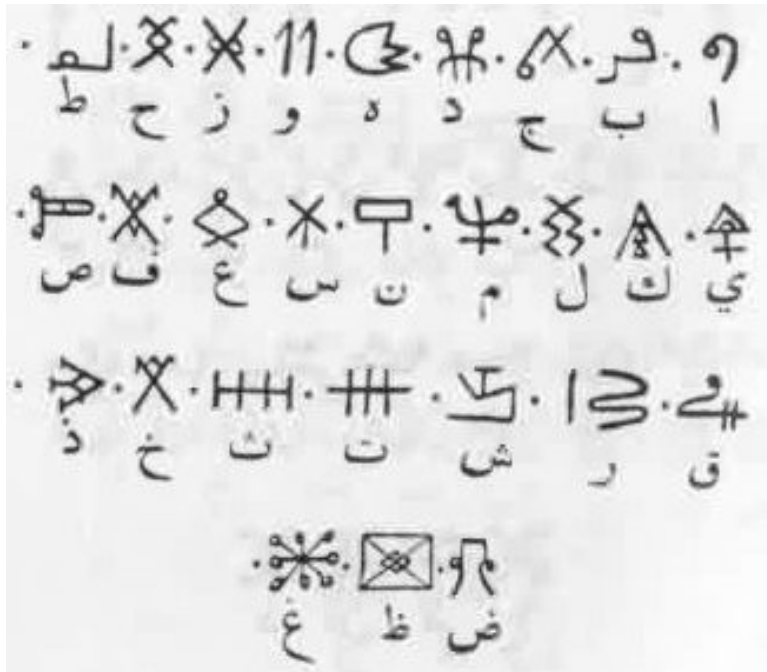 ا ب ج د ه و ز ح ط
ي ك ل م ن س ع ف ص
ق ر ش ت ث خ ذ
ض ظ غ